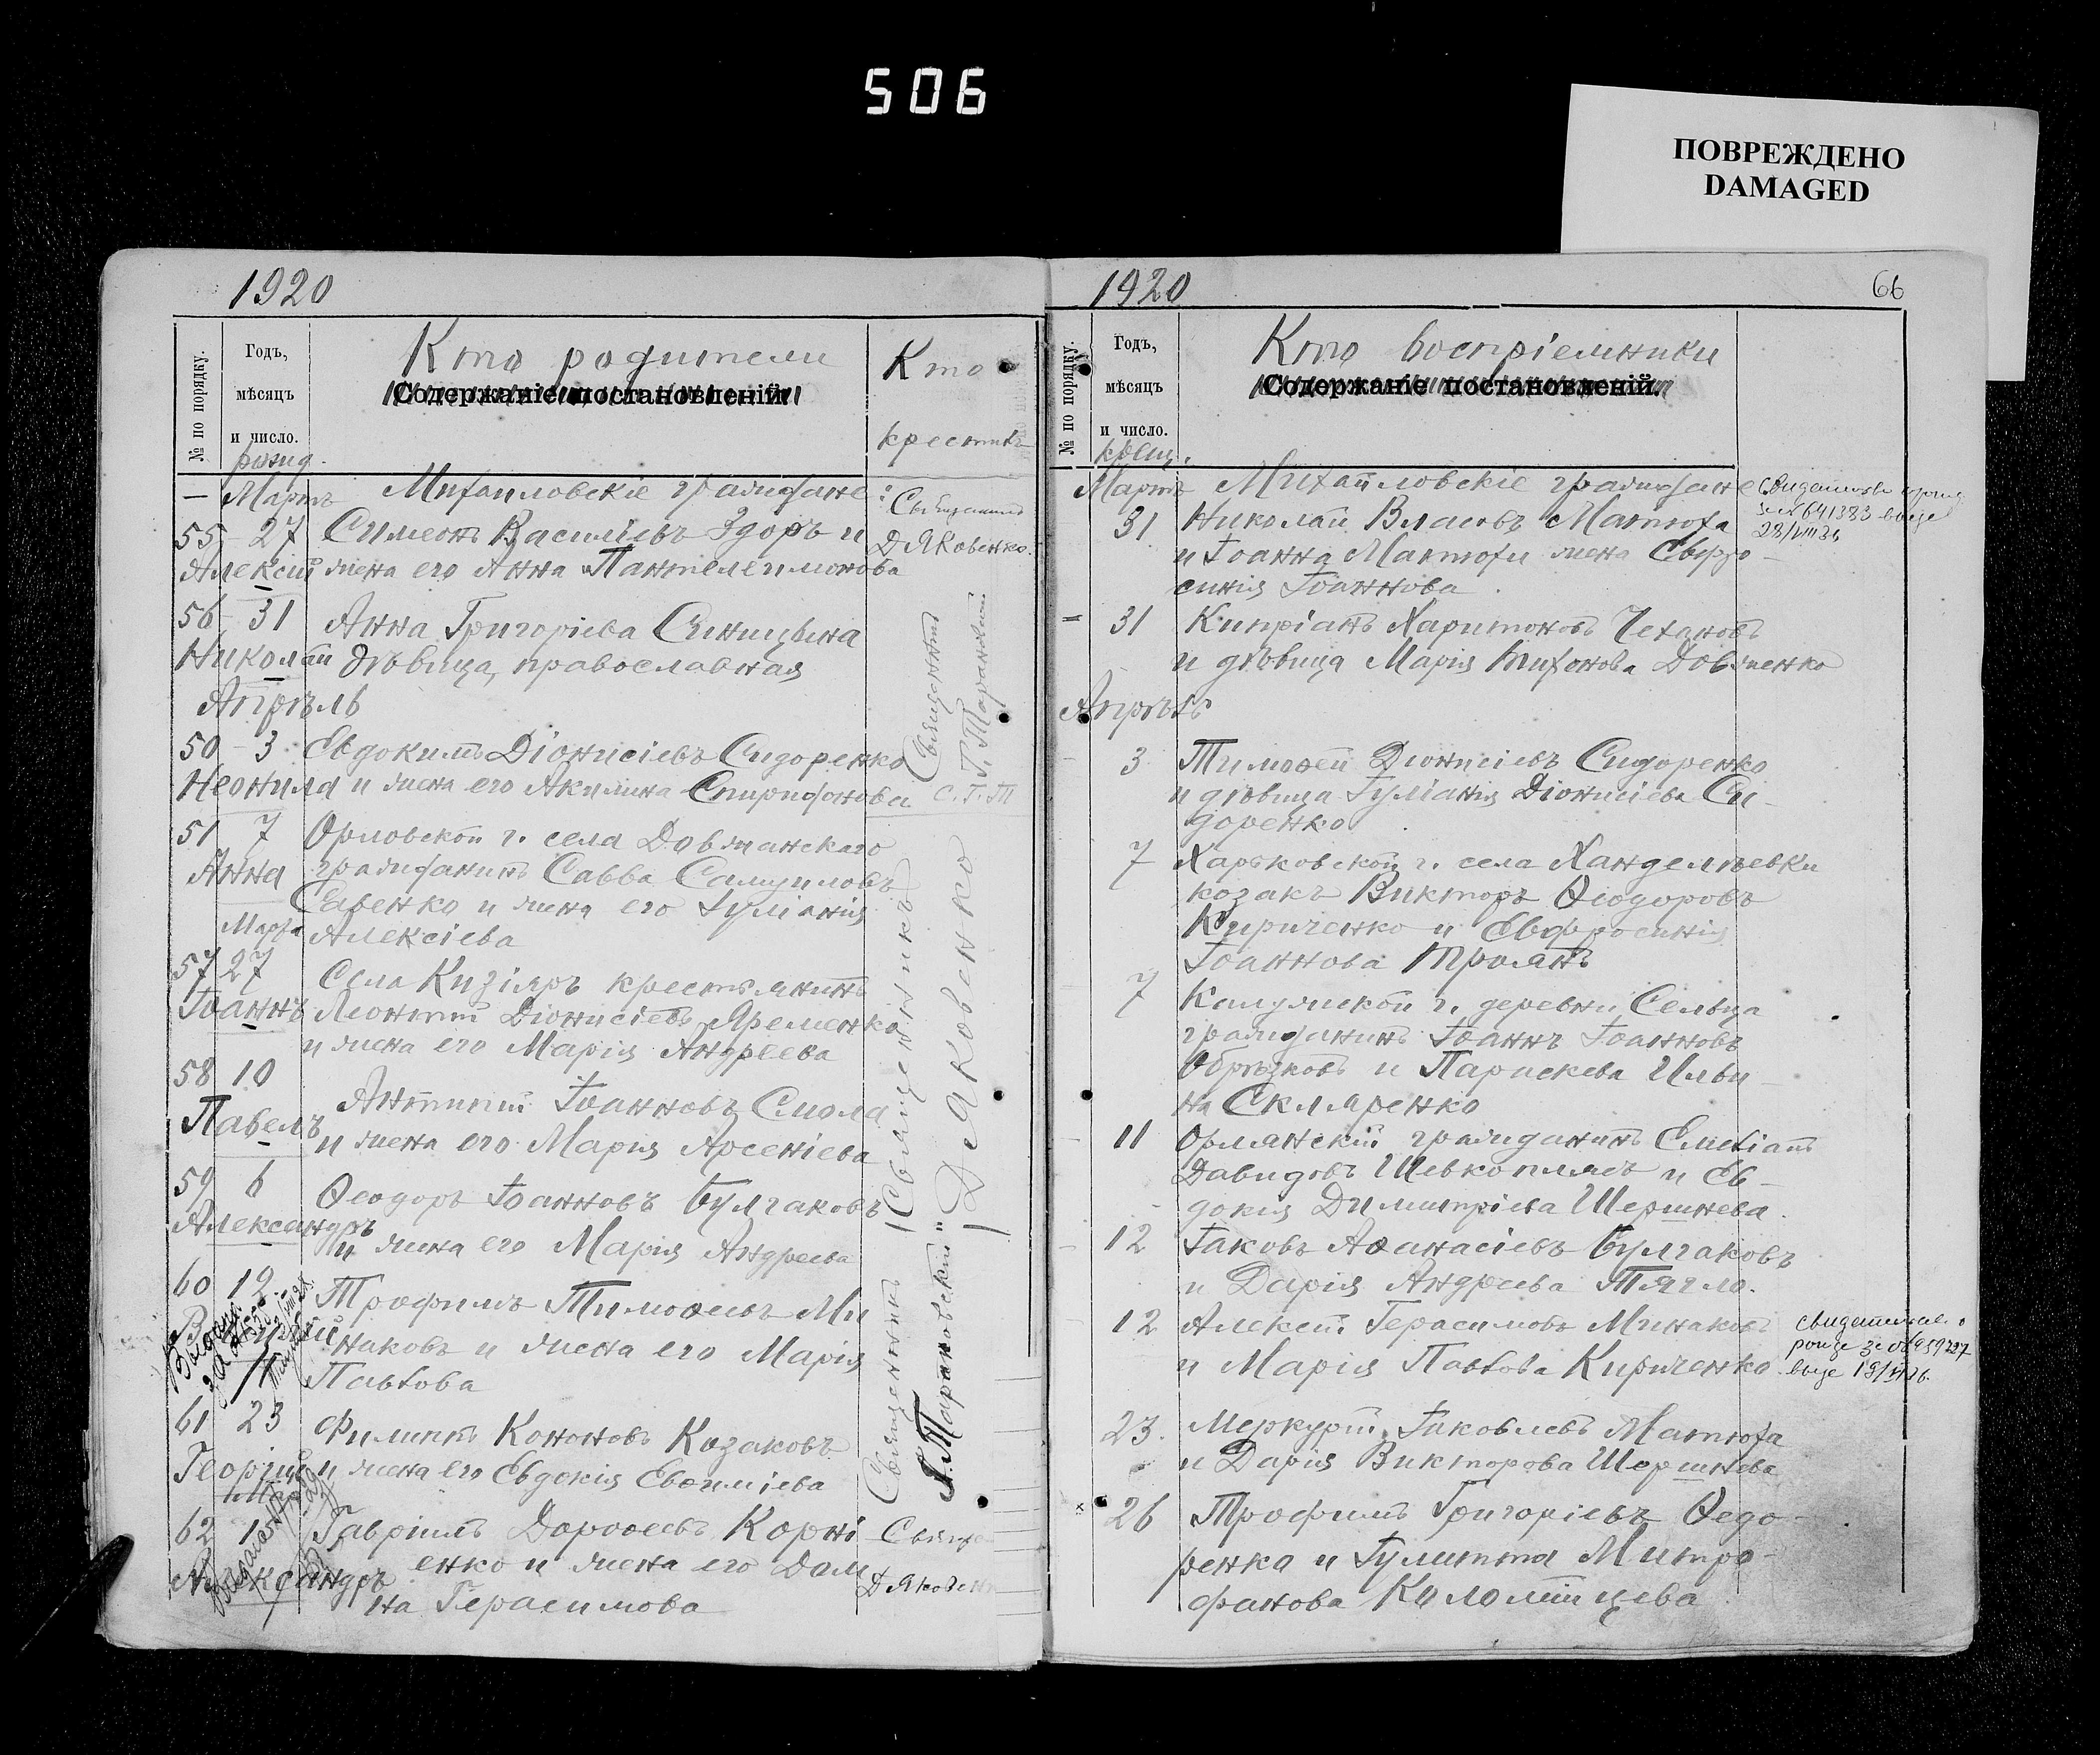 506
ПОВРЕЖДЕНО
DAMAGED
1920
№ по порядку.
Годъ,
мѣсяцъ
и число.
рожд.
Кто родители
Содержаніе постановленій.
Кто
крестилъ
— Мартъ Михайловскіе граждане:
55 27 Симеонъ Василіевъ Здоръ и
Алексій жена его Анна Пантелеимонова
Священникъ
Дяковенко.
56 31 Анна Григоріева Синицына
Николай дѣвица, православная
Апрѣль
50 3 Евдокимъ Діонисіевъ Сидоренко
Неонила и жена его Акилина Спиридонова
Священникъ
Г. Тарановскій
С. Г. Т
51 7 Орловской г. села Должанскаго
Анна гражданинъ Савва Самуиловъ
Савенко и жена его Іуліанія
Марта Алексіева
57 27 Села Кизіяръ крестьянинъ
Іоаннъ Леонтій Діонисіевъ Яременко
и жена его Марія Андреева
58 10 Антипій Іоанновъ Смола
Павелъ и жена его Марія Арсеніева
Священникъ
Дяковенко
59 6 Ѳеодоръ Іоанновъ Булгаковъ
Александръ и жена его Марія Андреева
60 12 Трофимъ Тимоѳеевъ Ми
наковъ и жена его Марія
Павлова
61 23 Филиппъ Кононовъ Козаковъ
Георгій и жена его Евдокія Евѳиміева
Священникъ
Тарановскій
62 1 Гавріилъ Дороѳеевъ Корні
Александръ енко и жена его Дом
на Герасимова
Дяковенк
1920
66
№ по порядку.
Годъ,
мѣсяцъ
и число.
крещ.
Кто воспріемники
Содержаніе постановленій.
Мартъ Михайловскіе граждане
31 Николай Власовъ Матюха
и Іоанна Матюхи жена Евфро
синія Іоаннова
641383
31 Кипріанъ Харитоновъ Чехановъ
и дѣвица Марія Тихонова Довженко
Апрѣль
3 Тимоѳей Діонисіевъ Сидоренко
и дѣвица Іуліанія Діонисіева Си-
доренко
7 Харьковской г. села Ханделѣевки
козакъ Викторъ Ѳеодоровъ
Кириченко и Евфросинія
Іоаннова Троянъ
7 Калужской г. деревни Сельца
гражданинъ Іоаннъ Іоанновъ
Обрѣзковъ и Параскева Ильи-
на Скляренко
11 Орлянскій гражданинъ Емеліанъ
Давидовъ Шевкоплясъ и Ев-
докія Димитріева Шершнева.
12 Іаковъ Аѳанасіевъ Булгаковъ
и Дарія Андреева Тягло.
12 Алексій Герасимовъ Минаковъ
и Марія Павлова Кириченко
23. Меркурій Іаковлевъ Матюха
и Дарія Викторова Шершнева
26 Трофимъ Григоріевъ Ѳедо-
ренко и Іулитта Митро-
фанова Коломійцева